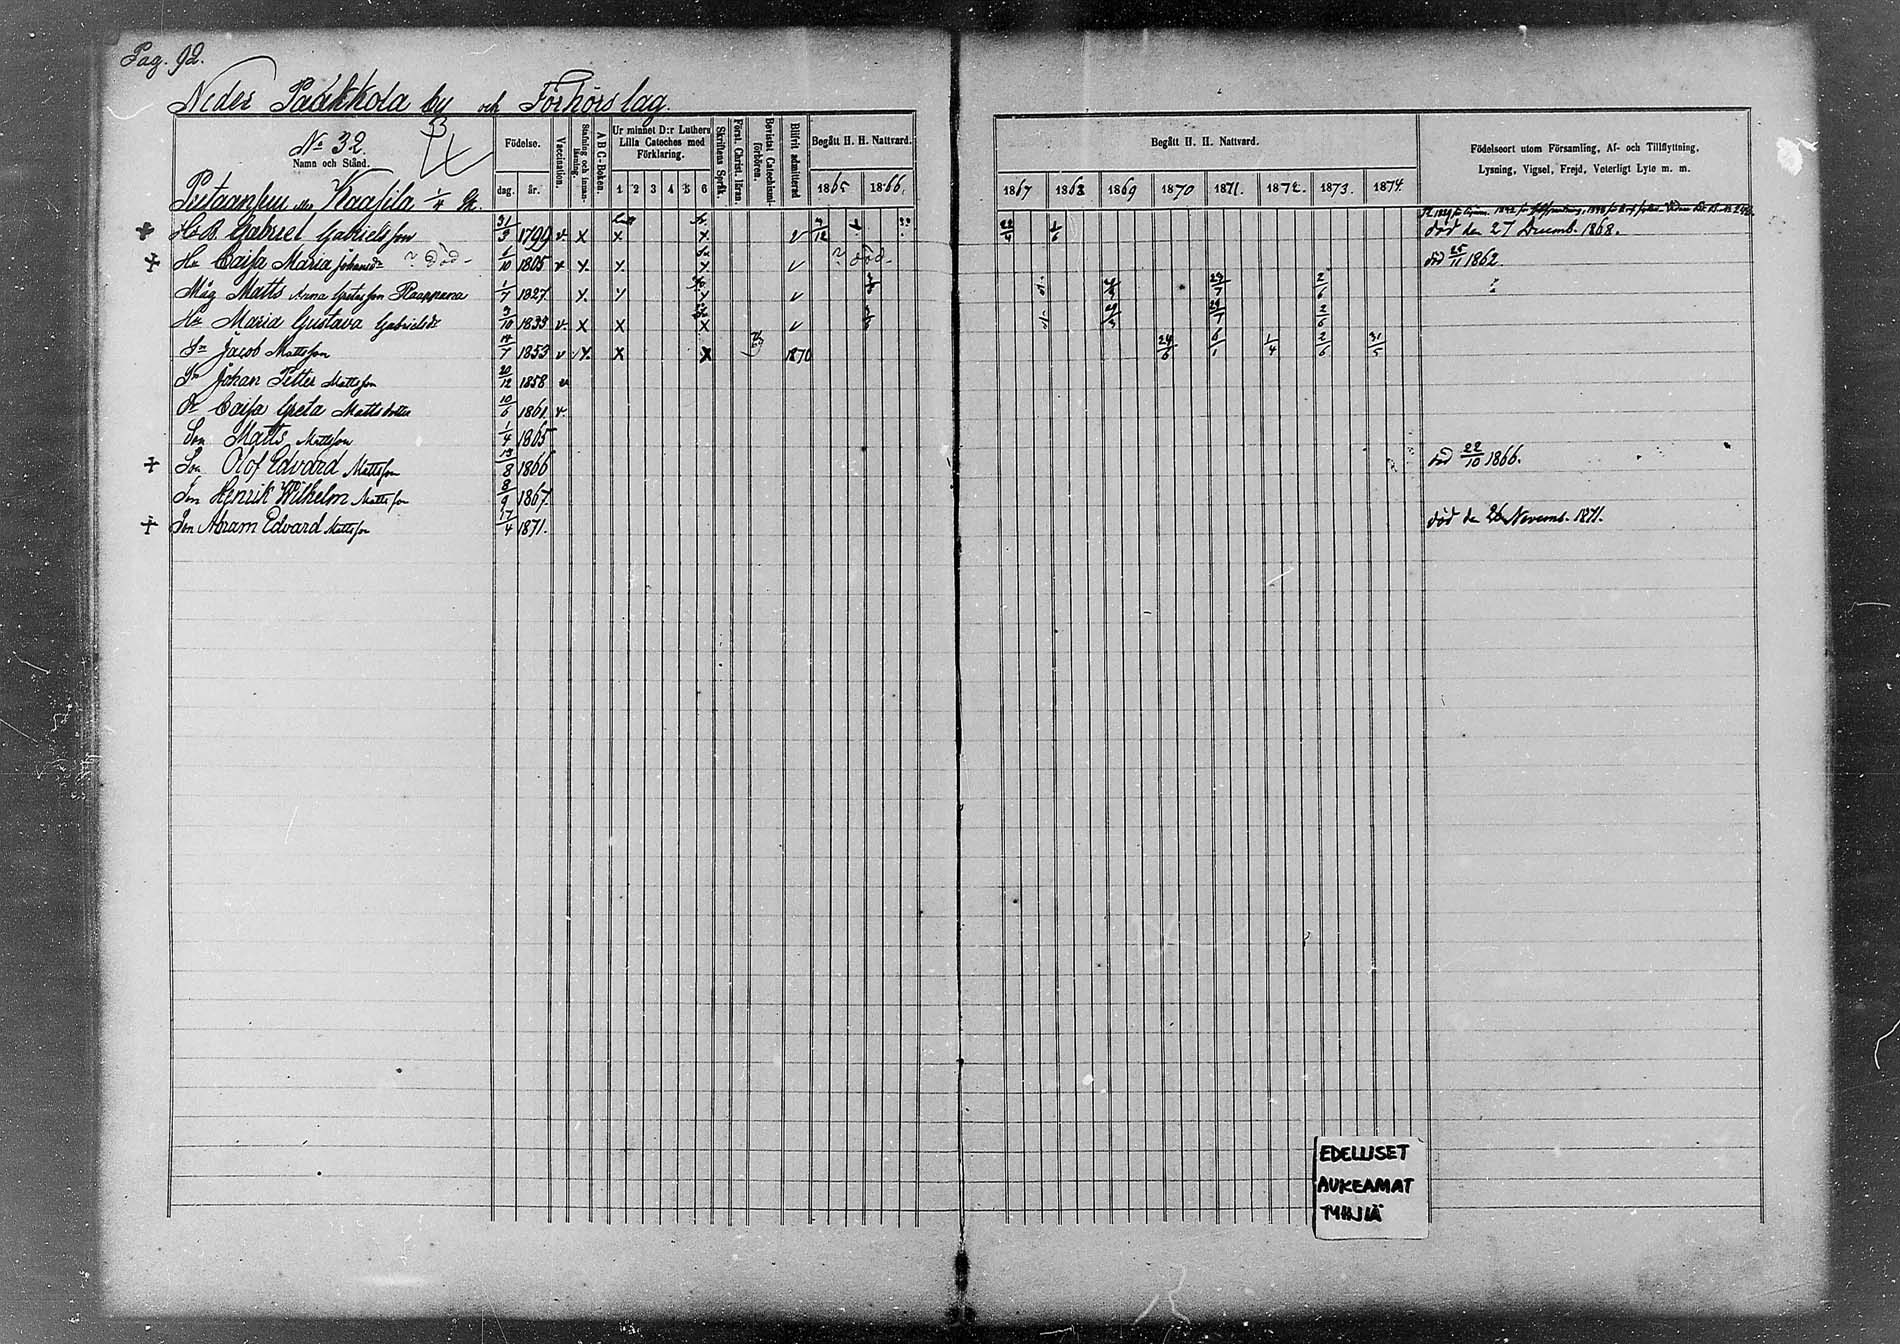 Pag. 92.
Neder Paakkola by och Förhörslag.
No 32.
Namn och Stånd.
Födelse.
dag. år.
Vaccination.
Stafning och innanläsning.
ABC-Boken.
Ur minnet D:r Luthers Lilla Cateches med Förklaring.
1 2 3 4 5 6
Skriftens Språk.
Först. Christ. läran.
Bevistat Catechismi-förhören.
Blifvit admitterad
Begått H. H. Nattvard.
1865 1866.
Begått H. H. Nattvard.
1867 1868 1869 1870 1871. 1872. 1873. 1874
Födelseort utom Församling, Af- och Tillflyttning,
Lysning, Vigsel, Frejd, Veterligt Lyte m. m.
Kaasila 1/4
Gabriel Gabrielsson 31/3 1799 v x x x död den 27 Decemb. 1868.
Hu Caisa Maria Johansdr ? död - 1/10 1805 v x ? död - död 25/11 1862
Måg Matts Anna Gretasson Raappana 1/7 1827 2/6
Hu Maria Gustava Gabrielsdr 9/10 1833 v x x x 2/6
Sn Jacob Mattsson 14/7 1853 v x x x 1870 24/6 6/1 1/4 2/6 31/5
Sn Johan Petter Mattsson 20/12 1858 v
Dr Caisa Greta Mattsdotter 10/6 1861 v
Son Matts Mattsson 1/4 1865
Son Olof Edvard Mattsson 13/8 1866 död 22/10 1866.
Son Henrik Wilhelm Mattsson 8/9 1867.
Son Abram Edvard Mattsson 17/4 1871. död den 26 Novemb. 1871.
EDELLISET
AUKEAMAT
TYHJIÄ